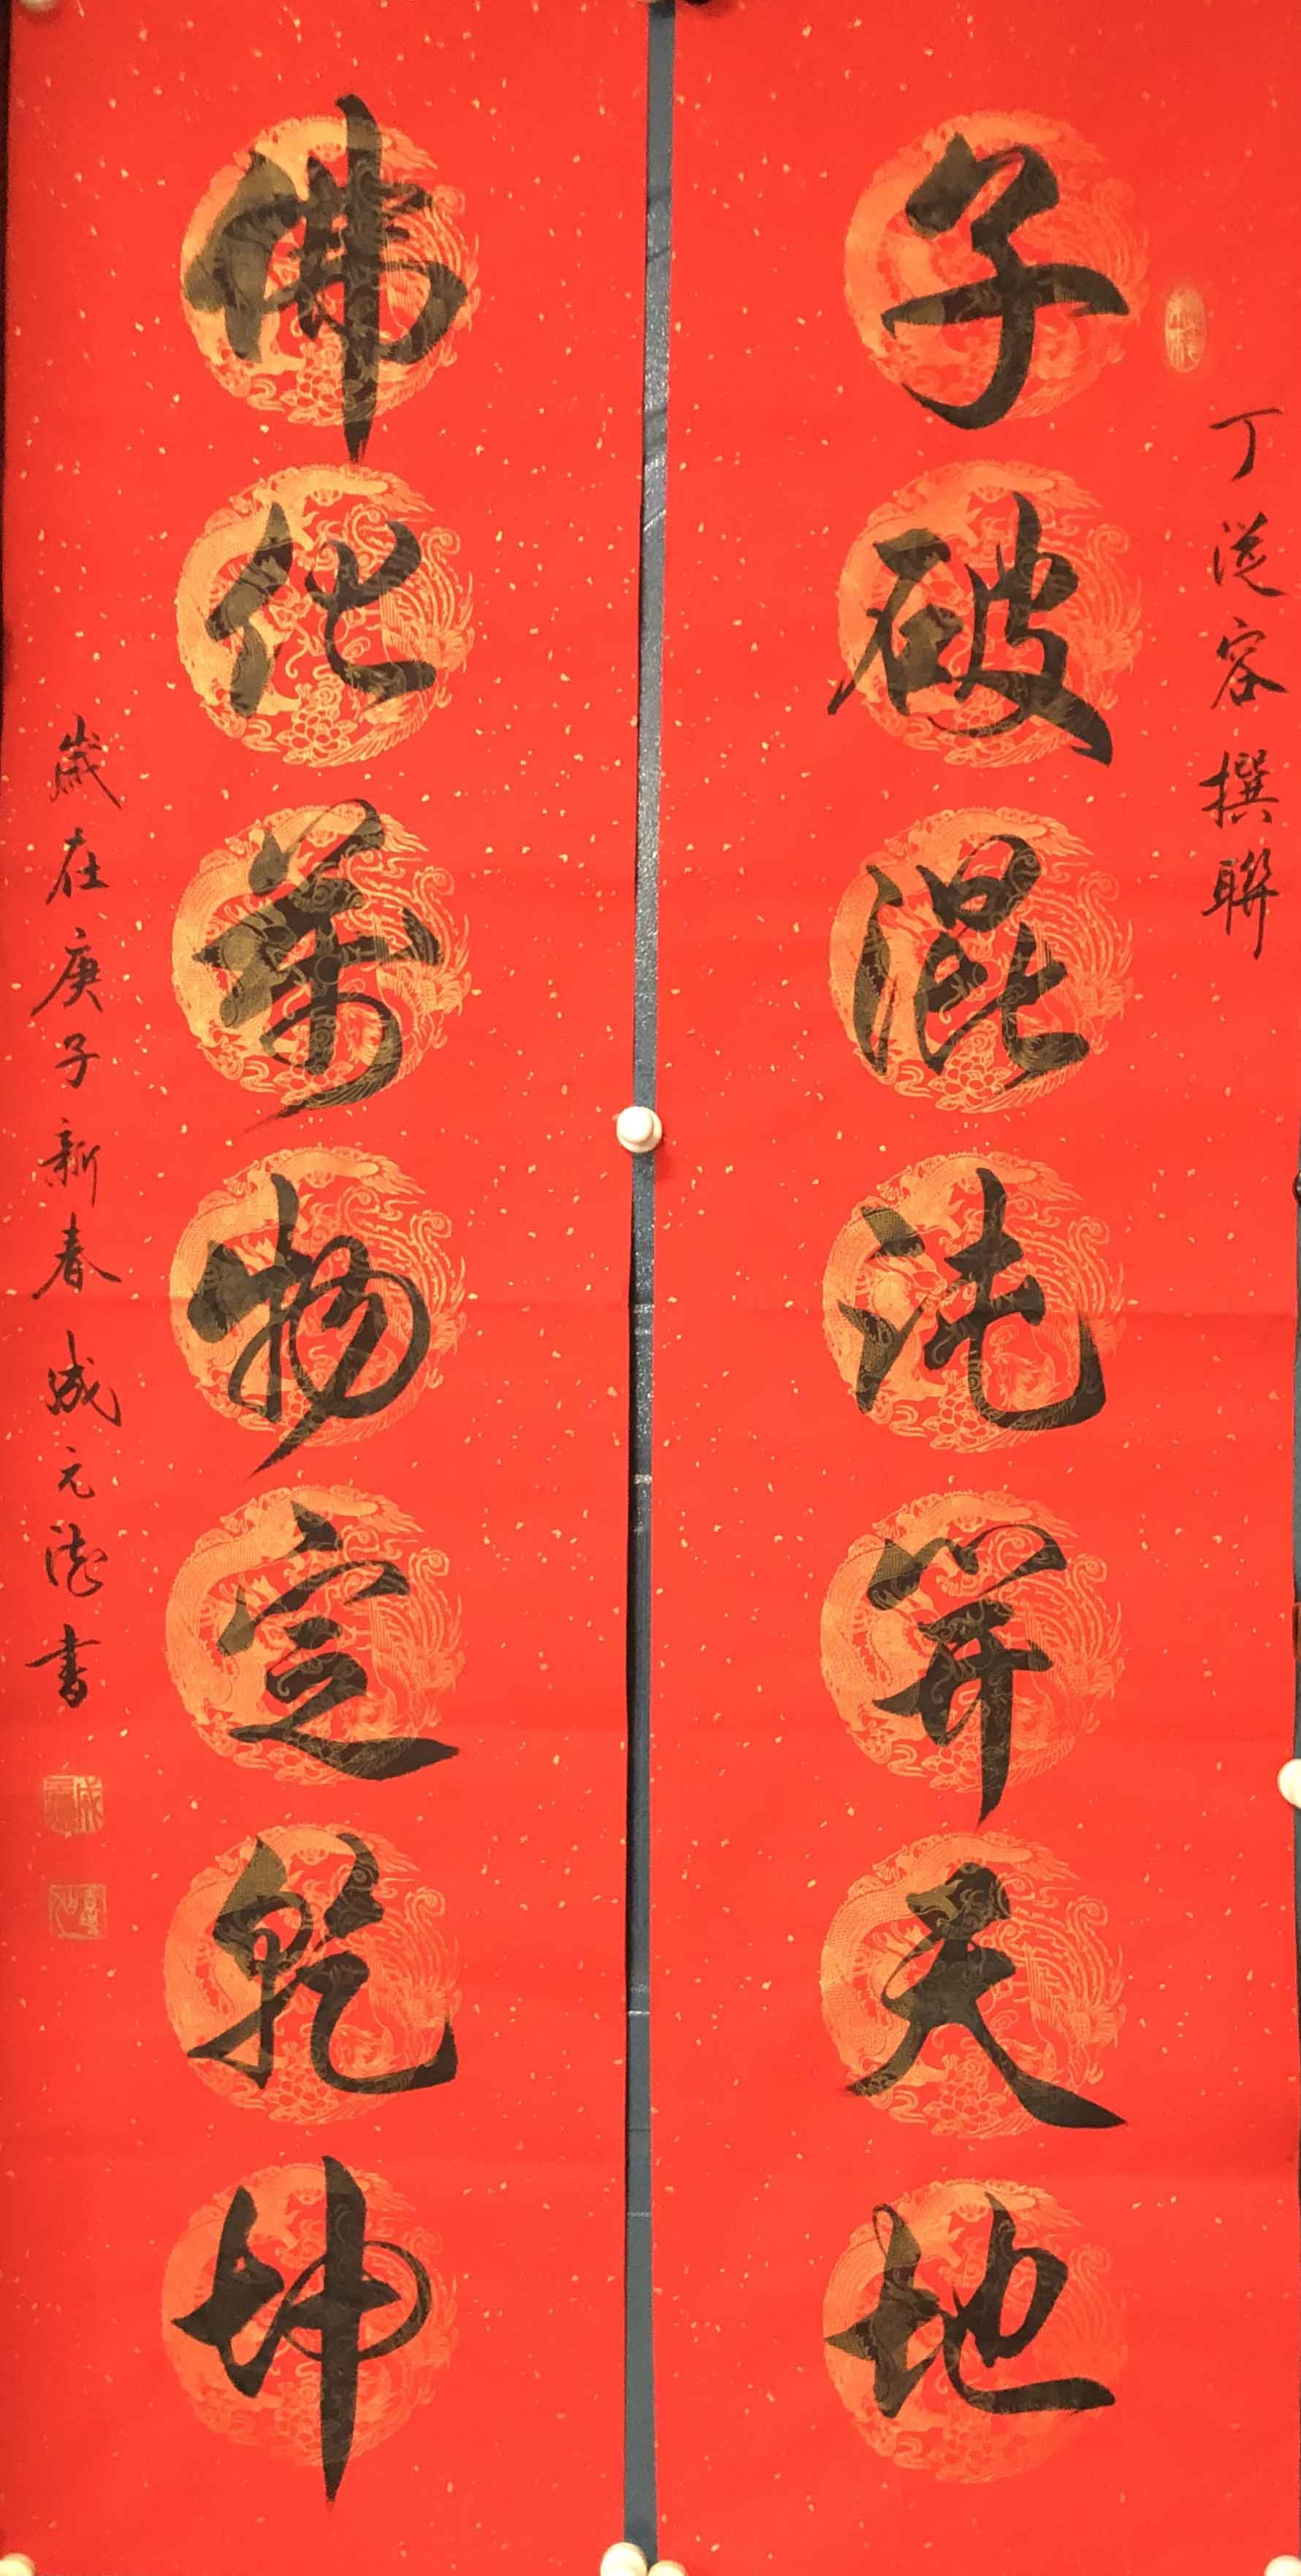 丁從容撰聯
子破混沌開天地
佛化萬物定乾坤
歲在庚子新春成元濤書